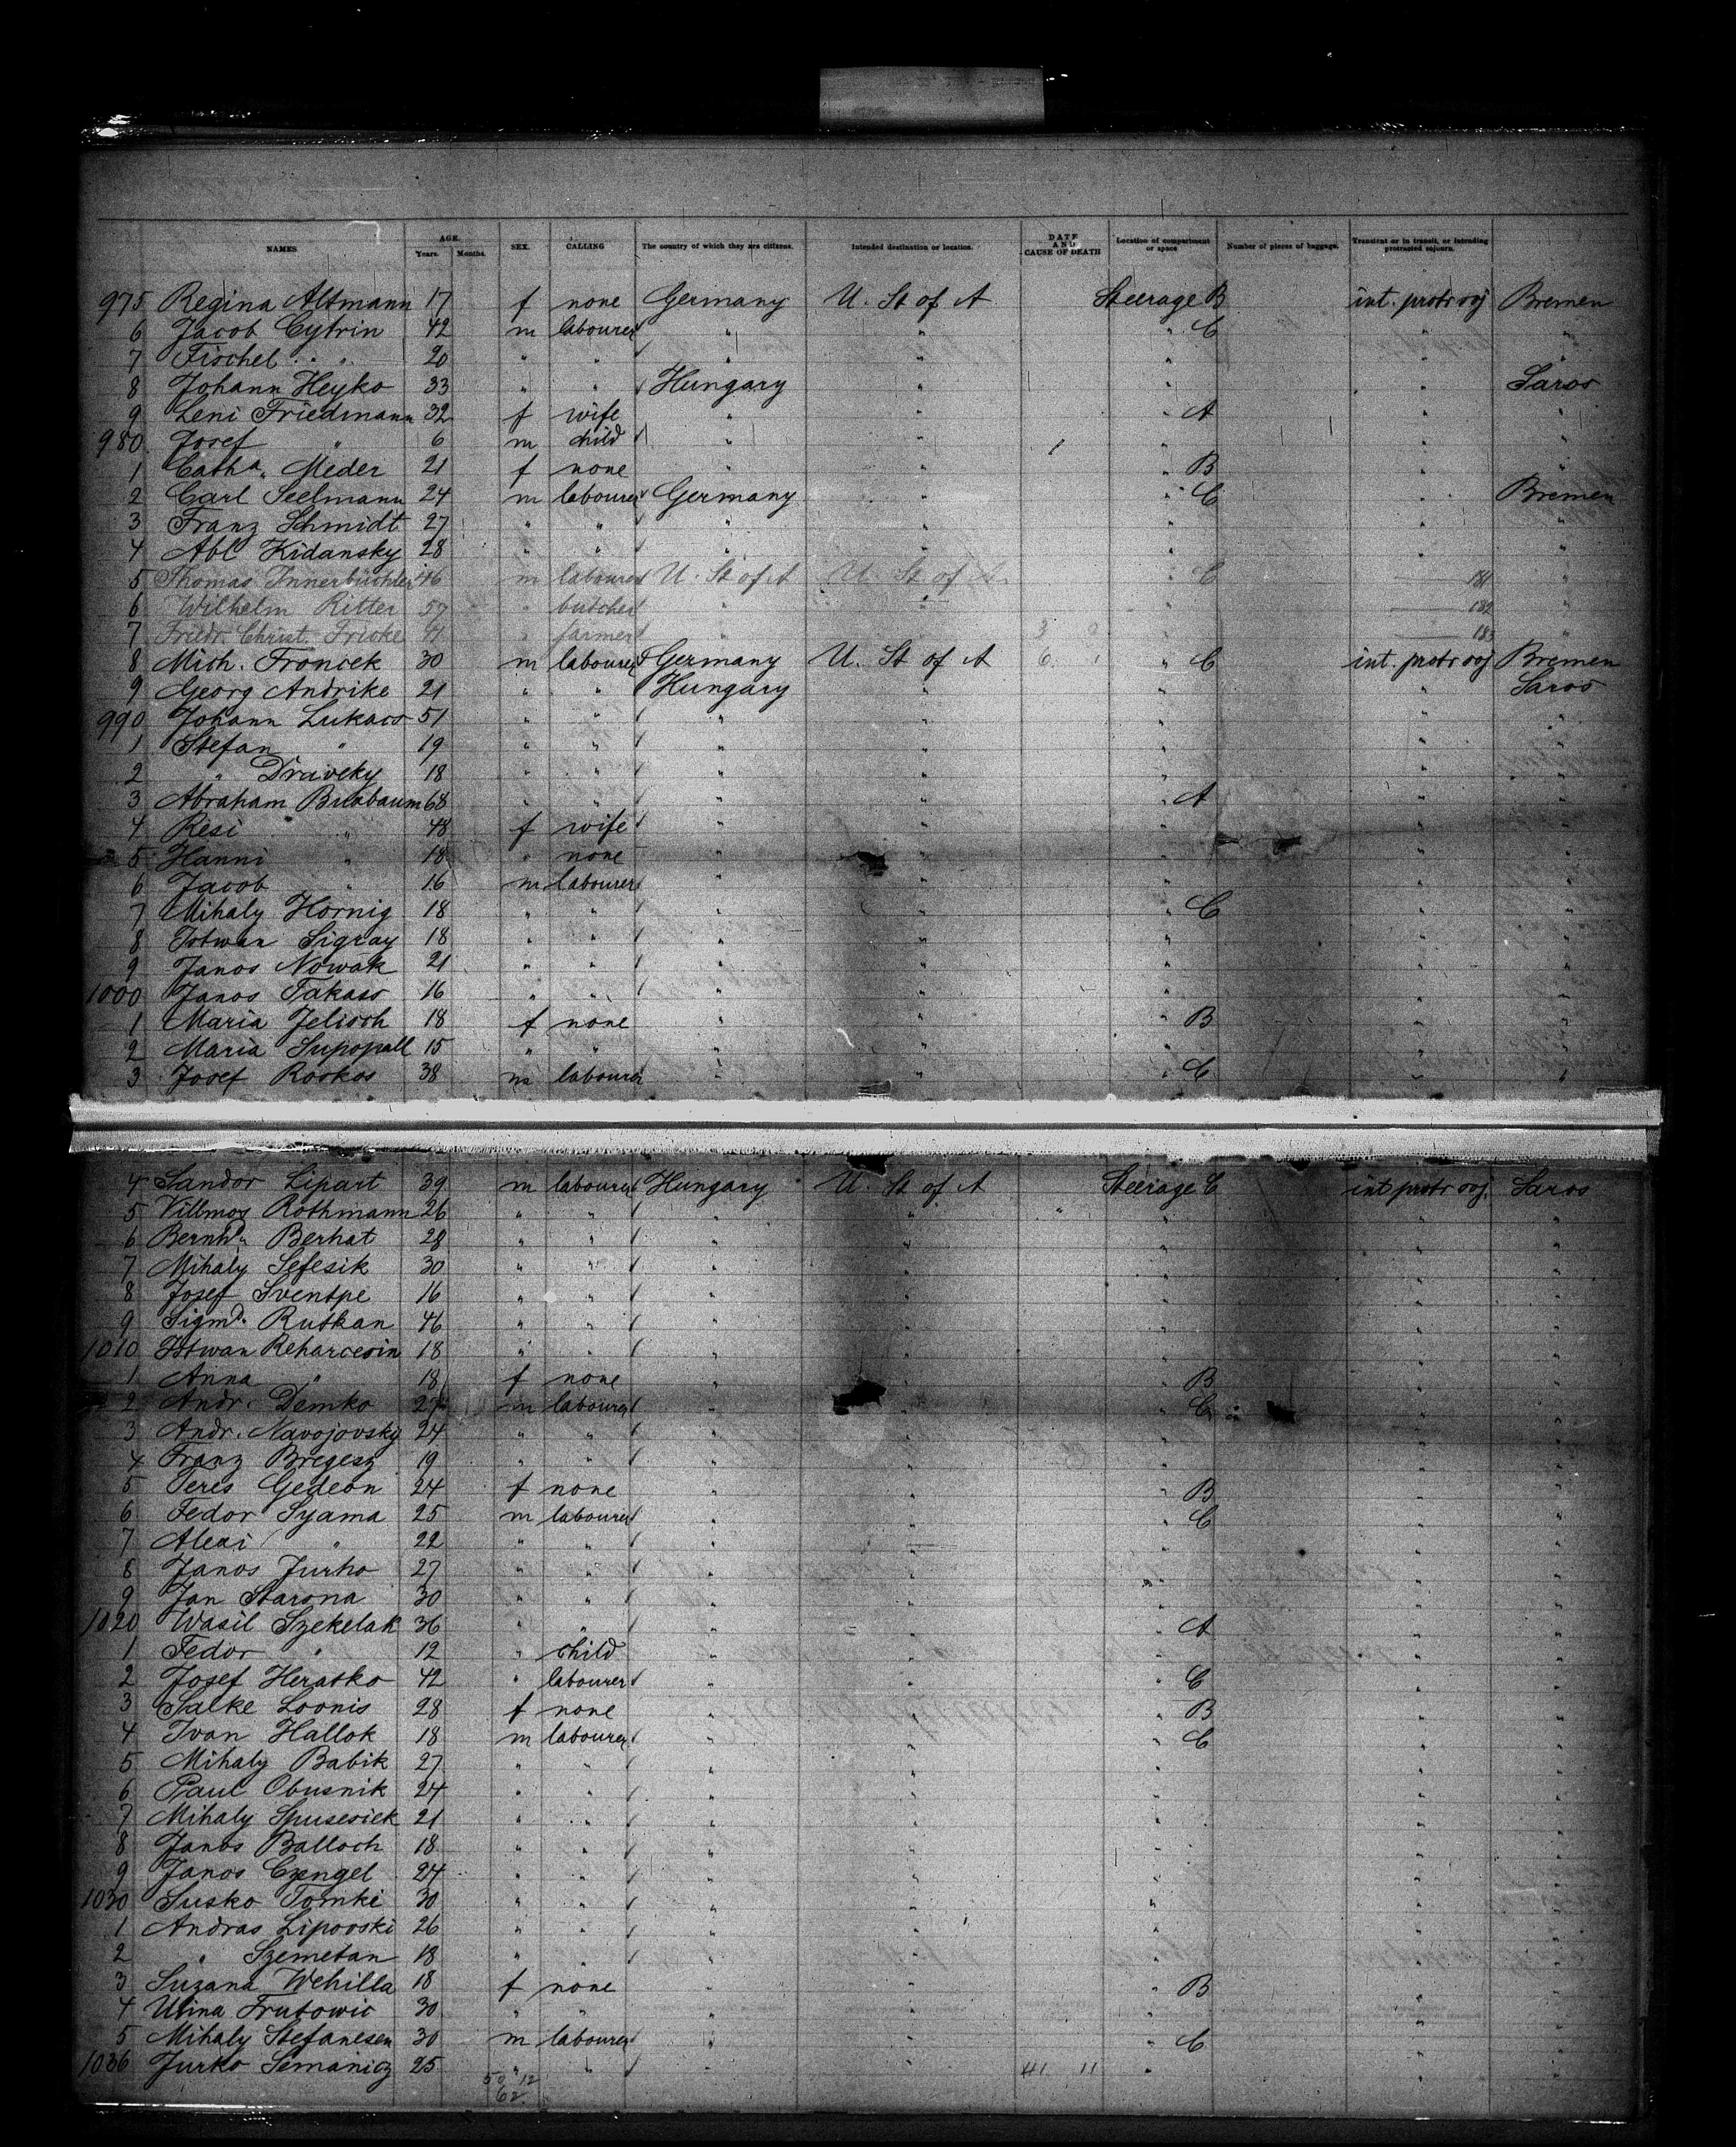 NAMES AGE. Years. Months. SEX. CALLING The country of which they are citizens. Intended destination or location. DATE AND CAUSE OF DEATH Location of compartment or space Number of pieces of baggage. Transient or in transit, or intending protracted sojourn.
975 Regina Altmann 17 f none Germany U. St of A Steerage B int. protr soj Bremen
6 Jacob Cytrin 42 m labourer " " " C " "
7 Fischel " 20 " " " " " " "
8 Johann Heyko 33 " " Hungary " " " Saros
9 Leni Friedmann 32 f wife " " " A " "
980 Josef " 6 m child " " " " "
1 Catha. Meder 21 f none " " " B " "
2 Carl Seelmann 24 m labourer Germany " " C " Bremen
3 Franz Schmidt 27 " " " " " " "
4 Abl Kidansky 28 " " " " " " "
5 Thomas Innerbüchler 46 m labourer U. St of A U. St of A " C 181 "
6 Wilhelm Ritter 57 " butcher " " " 182 "
7 Friedr. Christ. Fricke 41 " farmer " " " 183 "
8 Mich. Froncek 30 m labourer Germany U. St of A " C int. protr soj Bremen
9 Georg Andrike 21 " " Hungary " " " Saros
990 Johann Lukacs 51 " " " " " " "
1 Stefan " 19 " " " " " " "
2 " Draveky 18 " " " " " " "
3 Abraham Birnbaum 68 " " " " " A " "
4 Resi " 48 f wife " " " " "
5 Hanni " 18 " none " " " " "
6 Jacob " 16 m labourer " " " " "
7 Mihaly Hornig 18 " " " " " C " "
8 Istwan Sigray 18 " " " " " " "
9 Janos Nowak 21 " " " " " " "
1000 Janos Takass 16 " " " " " " "
1 Maria Jelisch 18 f none " " " B " "
2 Maria Supopall 15 " " " " " " "
3 Josef Roskos 38 m labourer " " " C " "
4 Sandor Lipart 39 m labourer Hungary U. St of A Steerage C int protr soj. Saros
5 Villmos Rothmann 26 " " " " " " "
6 Bernhd. Berhat 28 " " " " " " "
7 Mihaly Sefesik 30 " " " " " " "
8 Josef Sventpe 16 " " " " " " "
9 Sigmd. Rutkan 46 " " " " " " "
1010 Istwan Reharcesin 18 " " " " " " "
1 Anna " 18 f none " " " B " "
2 Andr. Demko 27 m labourer " " " C " "
3 Andr. Navojovsky 24 " " " " " " "
4 Franz Bregesz 19 " " " " " " "
5 Teres Gedeon 24 f none " " " B " "
6 Fedor Syama 25 m labourer " " " C " "
7 Alexi " 22 " " " " " " "
8 Janos Jurho 27 " " " " " " "
9 Jan Starona 30 " " " " " " "
1020 Wasil Szekelak 36 " " " " " A " "
1 Fedor " 12 " child " " " " "
2 Josef Herasko 42 " labourer " " " C " "
3 Salke Loonis 28 f none " " " B " "
4 Ivan Hallok 18 m labourer " " " C " "
5 Mihaly Babik 27 " " " " " " "
6 Paul Obusnik 24 " " " " " " "
7 Mihaly Spusesiek 21 " " " " " " "
8 Janos Balloch 18 " " " " " " "
9 Janos Czengel 24 " " " " " " "
1030 Susko Tomke 30 " " " " " " "
1 Andras Lipovski 26 " " " " " " "
2 " Szemetan 18 " " " " " " "
3 Suzana Wehilla 18 f none " " " B " "
4 Ulina Frutowic 30 " " " " " " "
5 Mihaly Stefanesen 30 m labourer " " " C " "
1036 Jurko Semanicz 25 " " " " 41 11 " " "
50 12
62